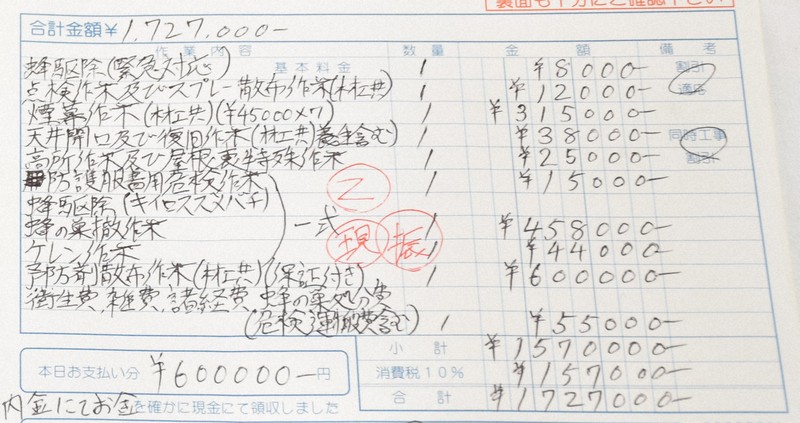 裏面も十分にご確認下さい
合計金額¥ 1,727,000-
作業内容 数量 金額 備考
蜂駆除(緊急対応) 基本料金 1 ¥8000- 割引
点検作業及びスプレー散布作業(材共) 1 ¥12000- 適応
煙幕作業(材共)(¥45000×7) 1 ¥315000-
天井開口及び復旧作業(材共)養生含む) 1 ¥38000- 同時工事
高所作業及び屋根裏特殊作業 1 ¥25000- 割引
防護服着用危検作業 1 ¥15000-
蜂駆除(キイロスズメバチ) 乙
蜂の巣撤作業 一式 現 振 1 ¥458000-
ケレン作業 1 ¥44000-
予防剤散布作業(材共)(保証付き) 1 ¥600000-
衛生費,雑費,諸経費,蜂の巣処分費
(危検運搬費含む) 1 ¥55000-
小計 ¥1570000-
本日お支払い分 ¥600000-円 消費税10% ¥157000-
合計 ¥1727000-
内金にてお金を確かに現金にて領収しました